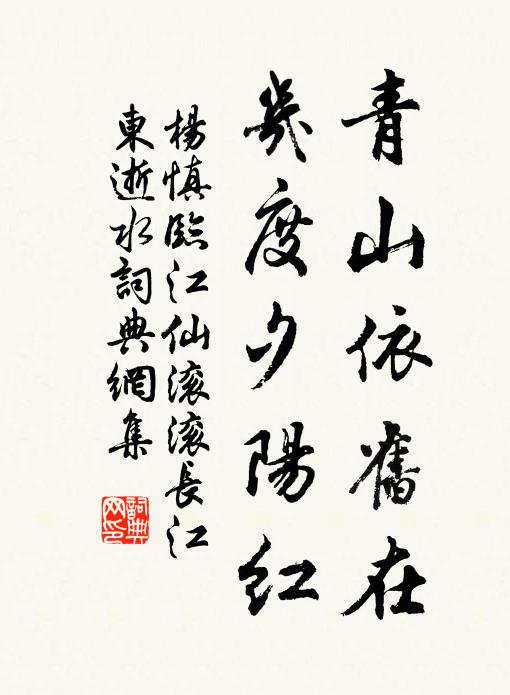 青山依舊在
幾度夕陽紅
楊慎臨江仙滚滚長江
東逝水詞典網集
詞典网印